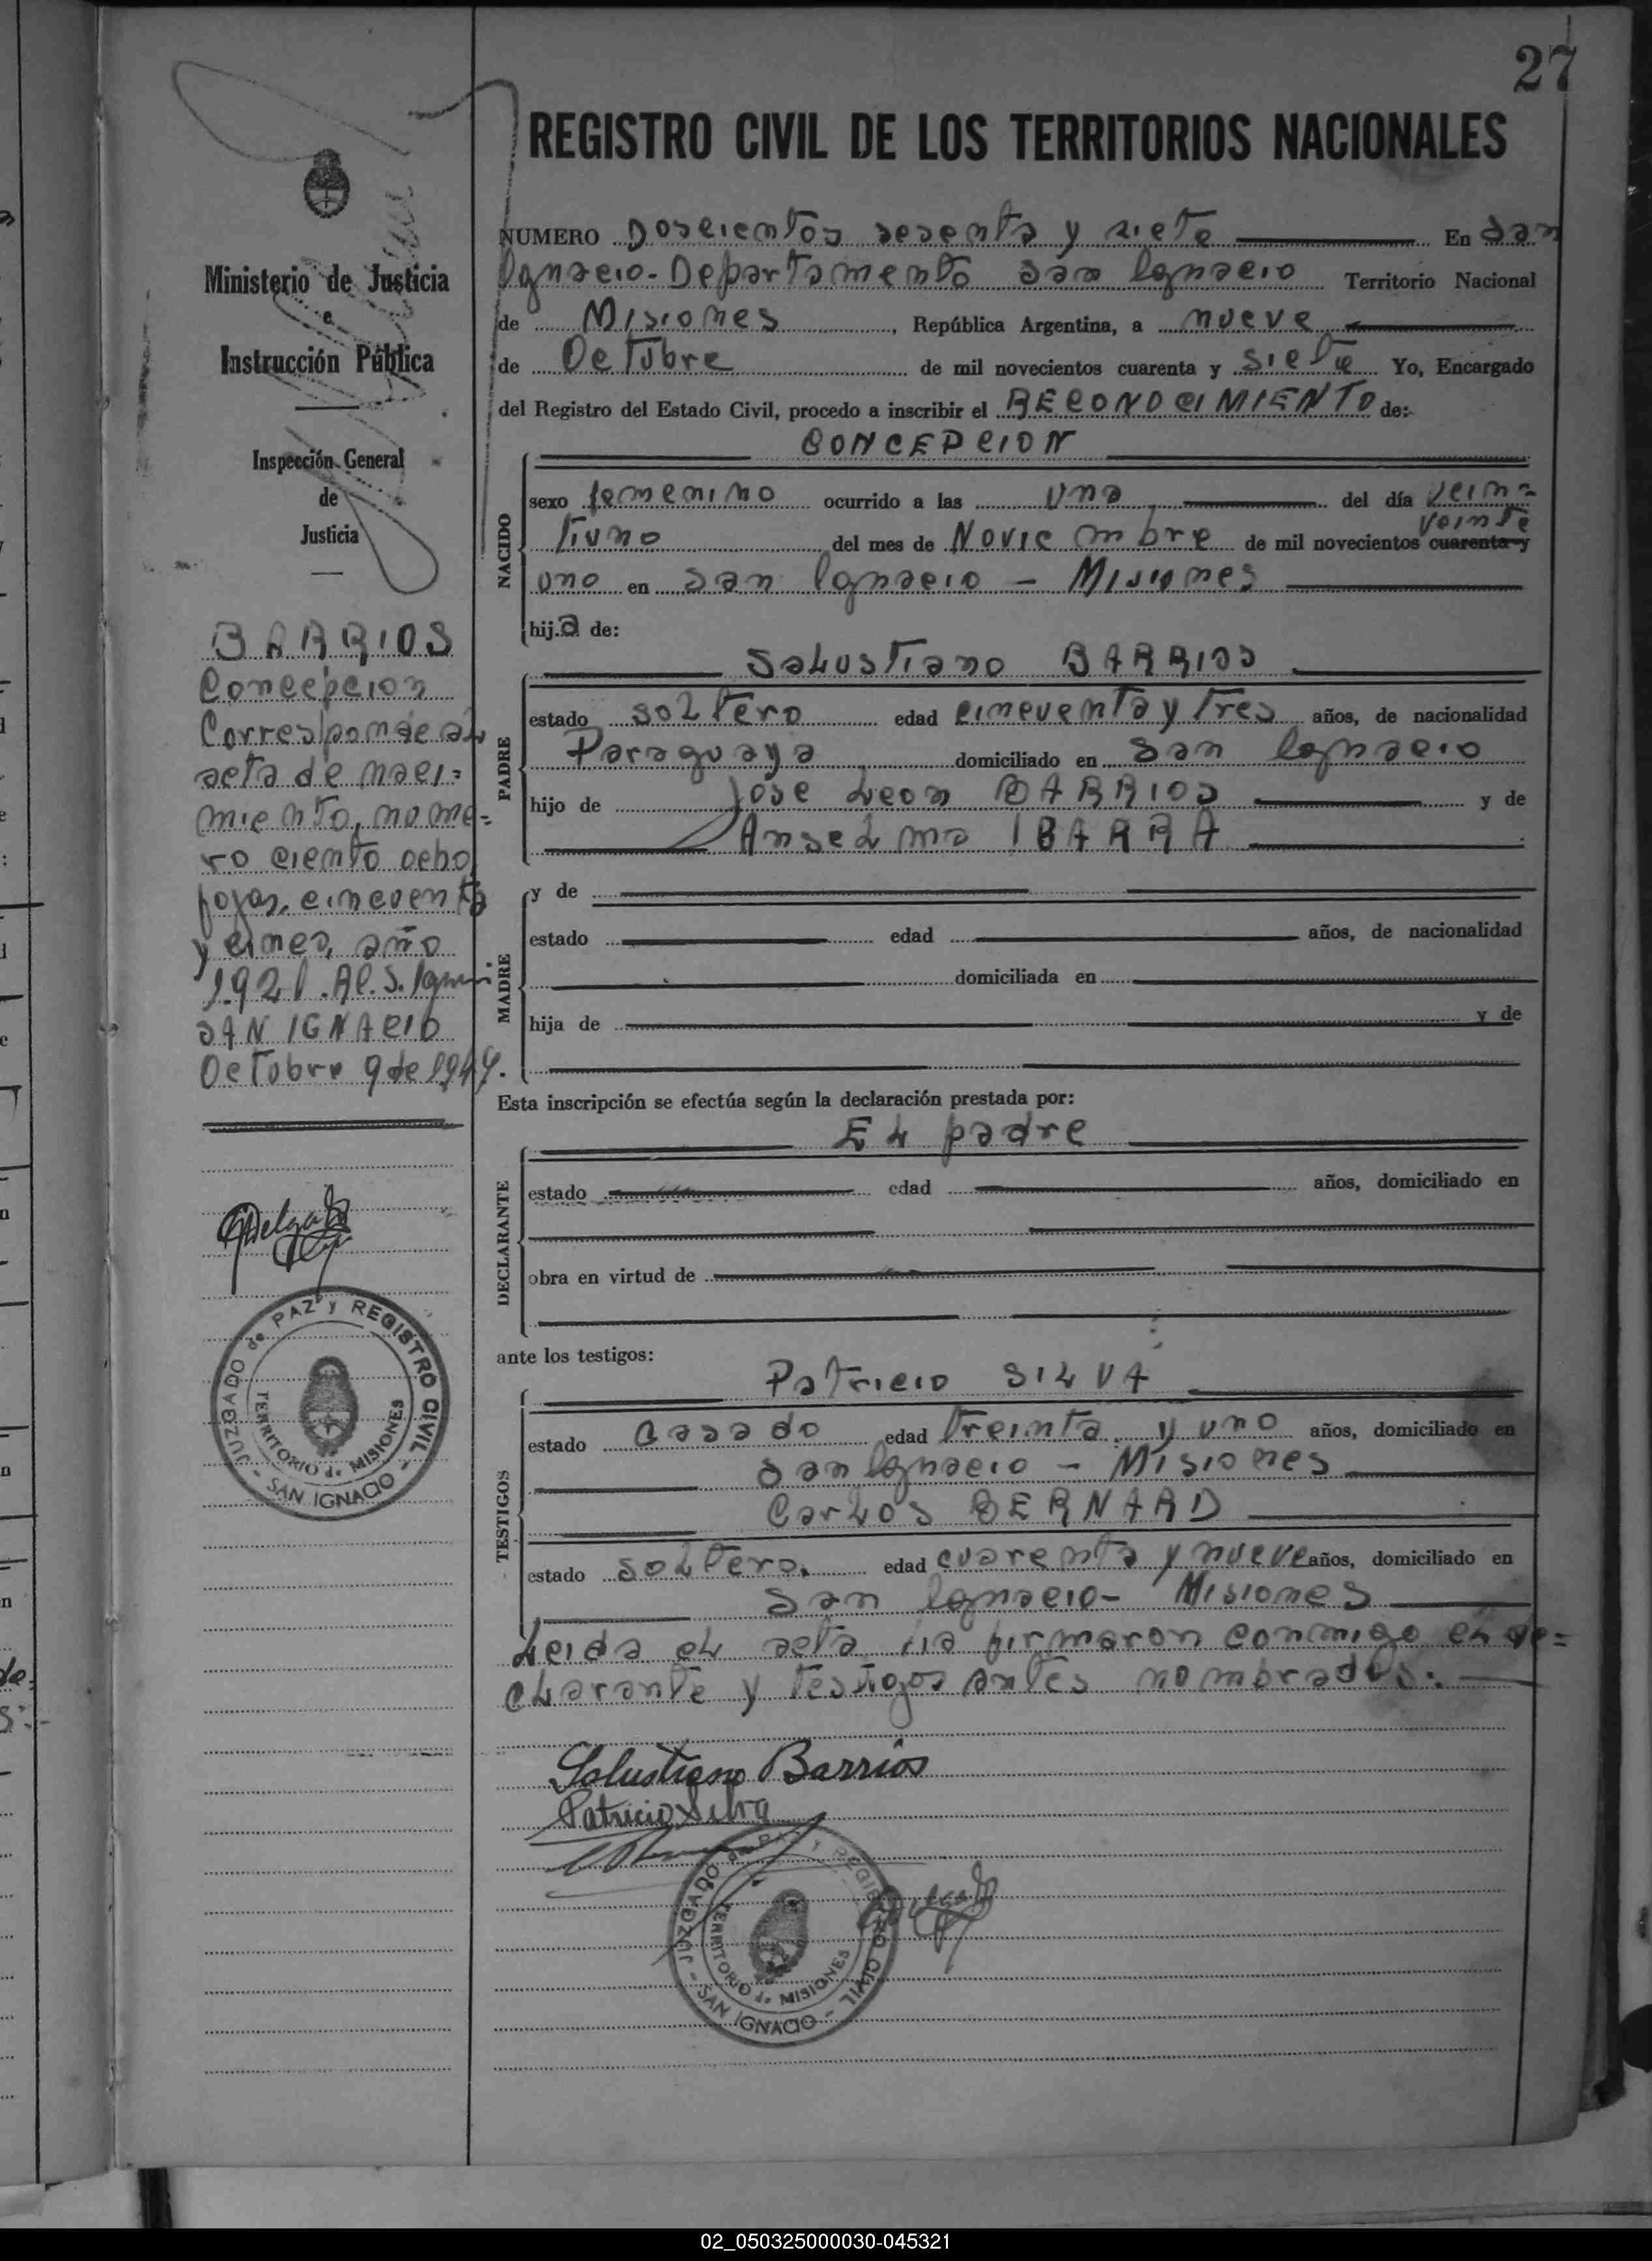 27
REGISTRO CIVIL DE LOS TERRITORIOS NACIONALES
NUMERO Doscientos sesenta y siete En San
Ignacio-Departamento San Ignacio Territorio Nacional
de Misiones, República Argentina, a nueve
de Octubre de mil novecientos cuarenta y siete Yo, Encargado
del Registro del Estado Civil, procedo a inscribir el RECONOCIMIENTO de:
CONCEPCION
NACIDO
sexo femenino ocurrido a las una del día vein=
veinte
tiuno del mes de Noviembre de mil novecientos cuarenta y
uno en San Ignacio - Misiones
hij.a de:
Salustiano BARRIOS
PADRE
estado soltero edad cincuenta y tres años, de nacionalidad
Paraguaya domiciliado en San Ignacio
hijo de Jose Leon BARRIOS y de
Anselma IBARRA
MADRE
y de
estado edad años, de nacionalidad
domiciliada en
hija de y de
Esta inscripción se efectúa según la declaración prestada por:
El padre
DECLARANTE
estado edad años, domiciliado en
obra en virtud de
ante los testigos:
Patricio SILVA
TESTIGOS
estado Casado edad treinta y uno años, domiciliado en
San Ignacio - Misiones
Carlos BERNARD
estado soltero. edad cuarenta y nueve años, domiciliado en
San Ignacio- Misiones
Leida el acta la firmaron conmigo el de=
clarante y testigos antes nombrados.
Salustiano Barrios
Patricio Silva
JUZGADO de PAZ y REGISTRO CIVIL - SAN IGNACIO -
TERRITORIO de MISIONES
Ministerio de Justicia
e
Instrucción Pública
Inspección General
de
Justicia
BARRIOS
Concepcion
Corresponde al
acta de naci=
miento, nume=
ro ciento ocho
fojas, cincuenta
y cinco, año
1.921. Al. S.
SAN IGNACIO
Octubre 9 de 1947.
Delgado
JUZGADO de PAZ y REGISTRO CIVIL - SAN IGNACIO -
TERRITORIO de MISIONES
02_050325000030-045321